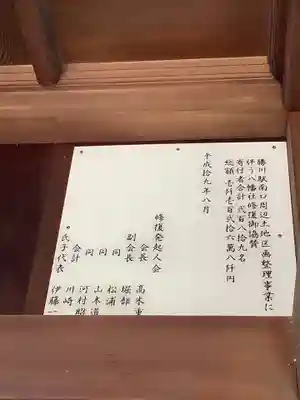 勝川駅南口周辺土地区画整理事業に
伴う八幡社修復御協賛
寄付者合計 弐百八拾九名
総額 壱阡壱百弐拾六萬八阡円
平成拾九年八月
修復発起人会
会長 高木重
副会長 堀部
同 松浦
同 山本道
同 河村昭
会計 川崎
氏子代表 伊藤一